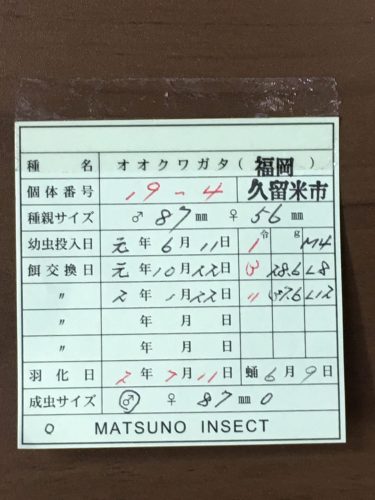 種 名 オオクワガタ(福岡)
個体番号 19-4 久留米市
種親サイズ ♂ 87 mm ♀ 56 mm
幼虫投入日 元年 6月 11日 1 令 g M4
餌交換日 元年 10月 22日 3 28.6 L8
〃 2年 1月 22日 〃 37.6 L12
〃 年 月 日
〃 年 月 日
羽化日 2年 7月 11日 蛹 6月 9日
成虫サイズ ♂ ♀ 87 mm 0
0 MATSUNO INSECT